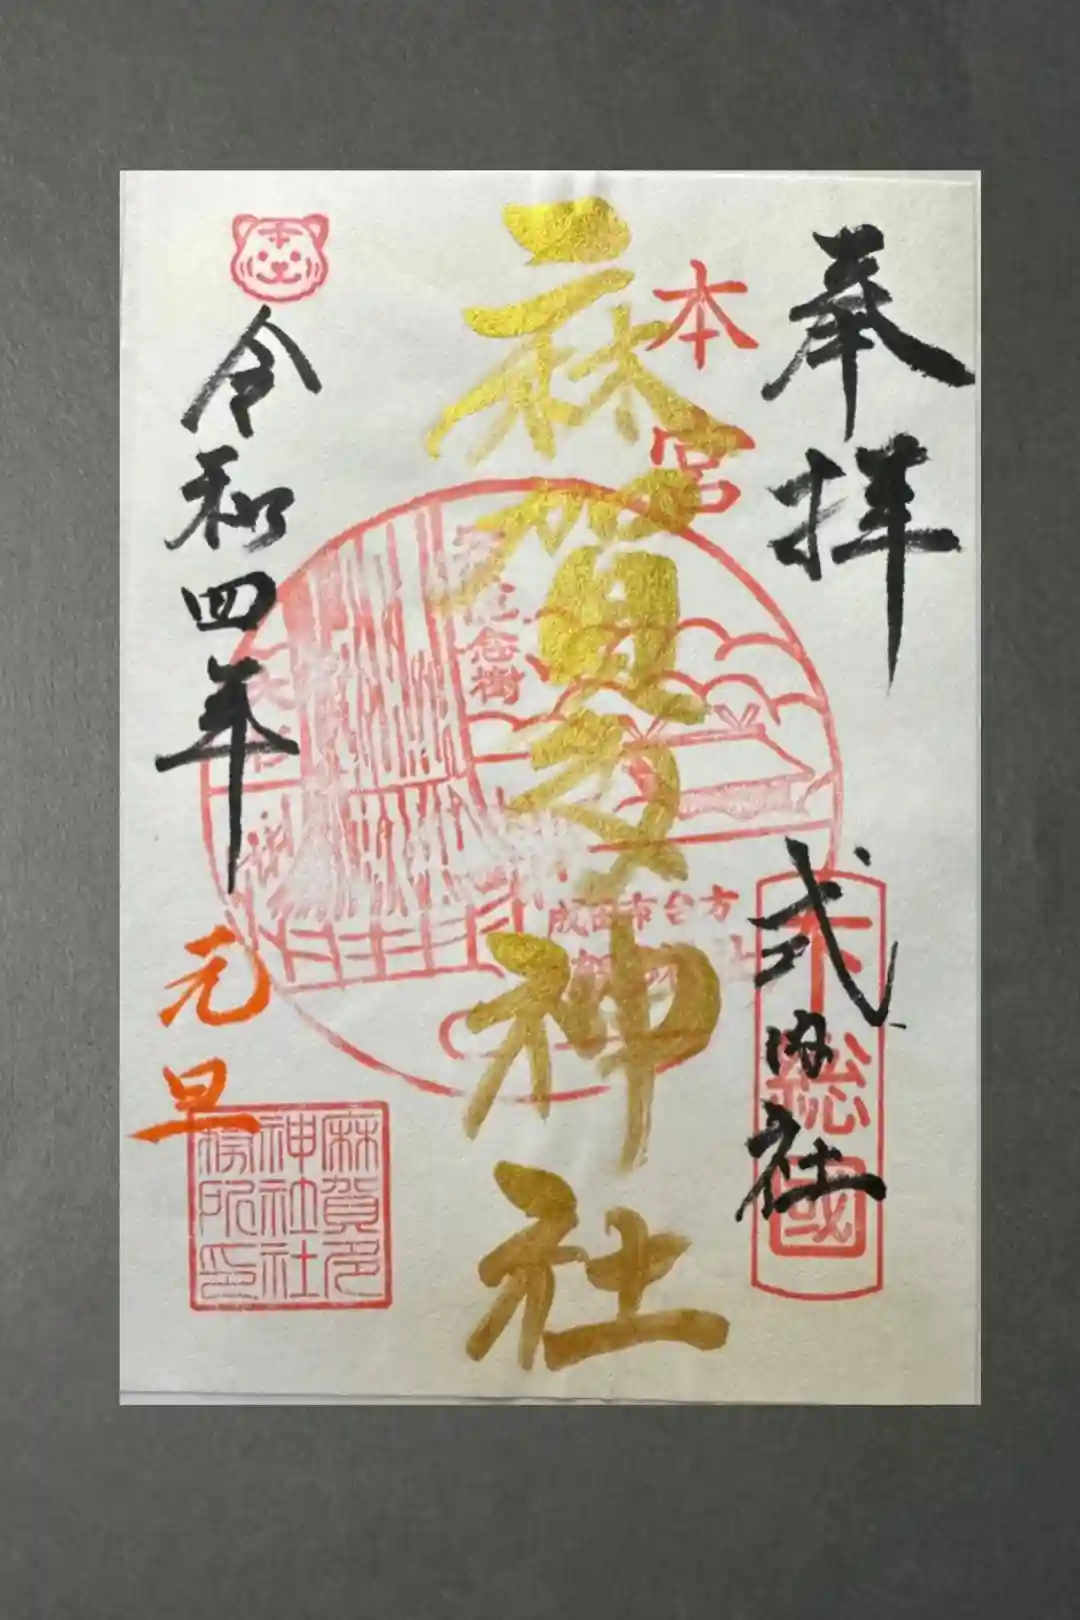 奉拝
式内社
下総國
本宮
麻賀多神社
念樹
成田市台方
令和四年
元旦
麻賀多
神社社
務所印